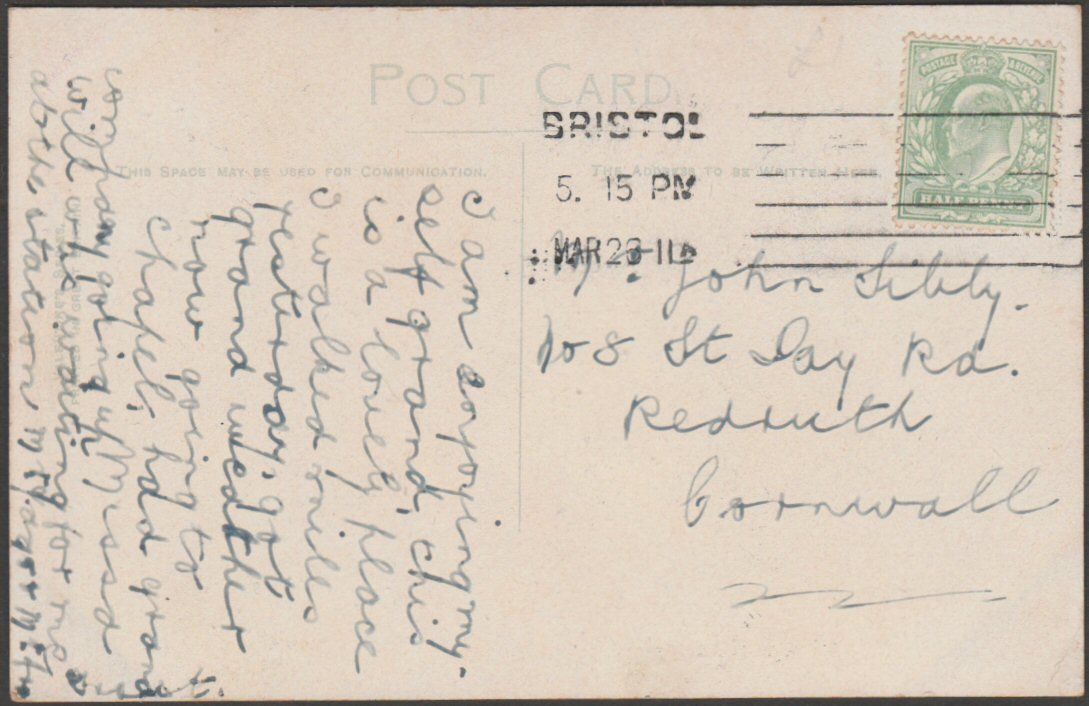 POST CARD.
THIS SPACE MAY BE USED FOR COMMUNICATION.
THE ADDRESS TO BE WRITTEN HERE.
POSTAGE & REVENUE
HALF PENNY
BRISTOL
5. 15 PM
MAR 26 11
Mr John Sibly.
108 St Day Rd.
Redruth
Cornwall
I am enjoying my-
self grand, this
is a lovely place
I walked miles
yesterday, got
grand weather
now going to
chapel, had grand
going up Missd
will waiting for me
at the station